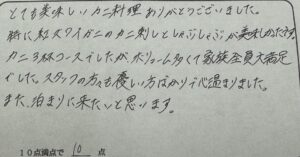 とても美味しいカニ料理ありがとうございました。
特に紅ズワイガニのカニ刺しとしゃぶしゃぶが美味しかったです。
カニ3杯コースでしたが、ボリューム多くて家族全員大満足
でした。スタッフの方も優しい方ばかりで心温まりました。
また、泊まりに来たいと思います。
10点満点で 10 点